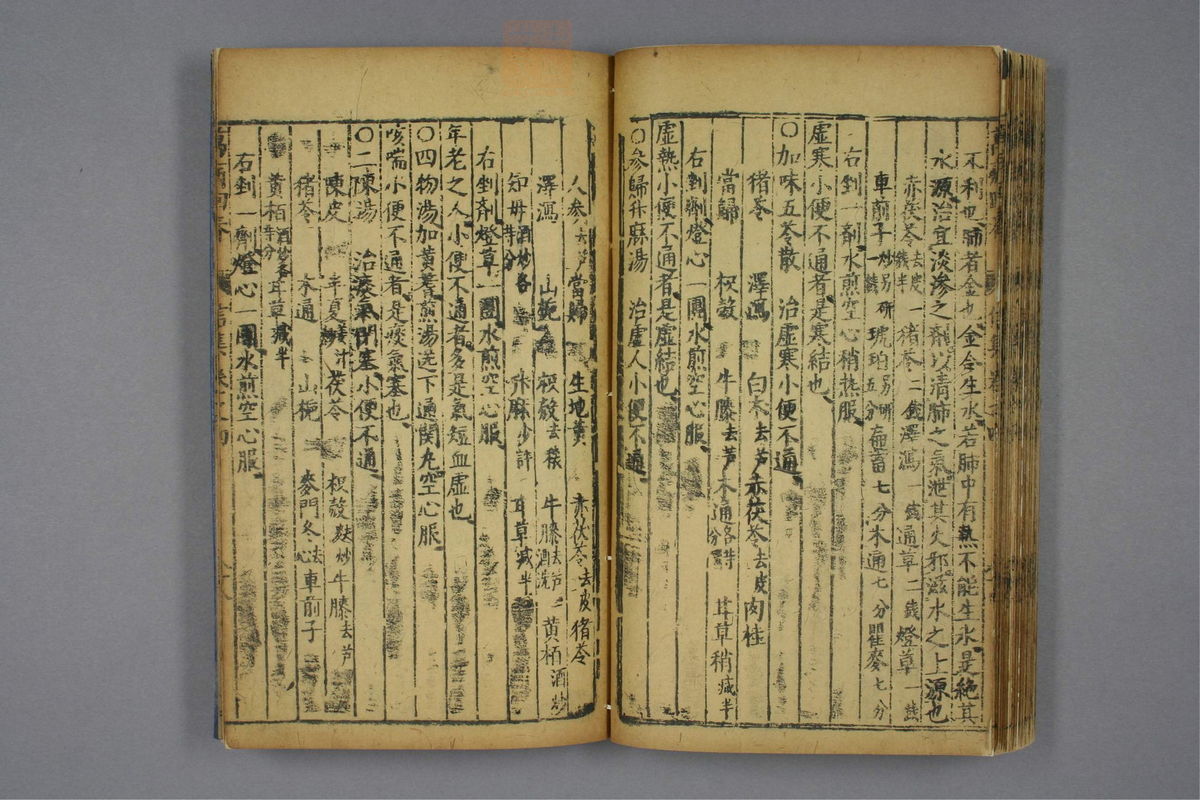 不利也肺者金也金合生水若肺中有熱不能生水是絕其
水源治宜淡滲之劑以清肺之氣泄其火邪滋水之上源也
赤茯苓去皮一錢半 猪苓二錢 澤瀉一錢 通草二錢 燈草一錢
車前子炒另研一錢 琥珀另研五分 萹蓄七分 木通七分 瞿麥七分
右剉一劑水煎空心稍熱服
虛寒小便不通者是寒結也
〇加味五苓散 治虛寒小便不通
猪苓 澤瀉 白朮去芦 赤茯苓去皮 肉桂
當歸 枳殼 牛膝去芦 木通各等分 甘草稍减半
右剉劑燈心一團水煎空心服
虛熱小便不通者是虛結也
〇參歸升麻湯 治虛人小便不通
人參去芦 當歸 生地黃 赤茯苓去皮 猪苓
澤瀉 山梔 枳殼去穰 牛膝去芦酒洗 黃栢酒炒
知毋酒炒各等分 升麻少許 甘草减半
右剉劑燈草一團水煎空心服
年老之人小便不通者多是氣短血虛也
〇四物湯加黃芪煎湯送下通関丸空心服
咳喘小便不通者是痰氣塞也
〇二陳湯 治痰氣閉塞小便不通
陳皮 半夏姜汁炒 茯苓 枳殼麩炒 牛膝去芦
猪苓 木通 山梔 麥門冬去心 車前子
黃栢酒炒各等分 甘草减半
右剉一劑燈心一團水煎空心服